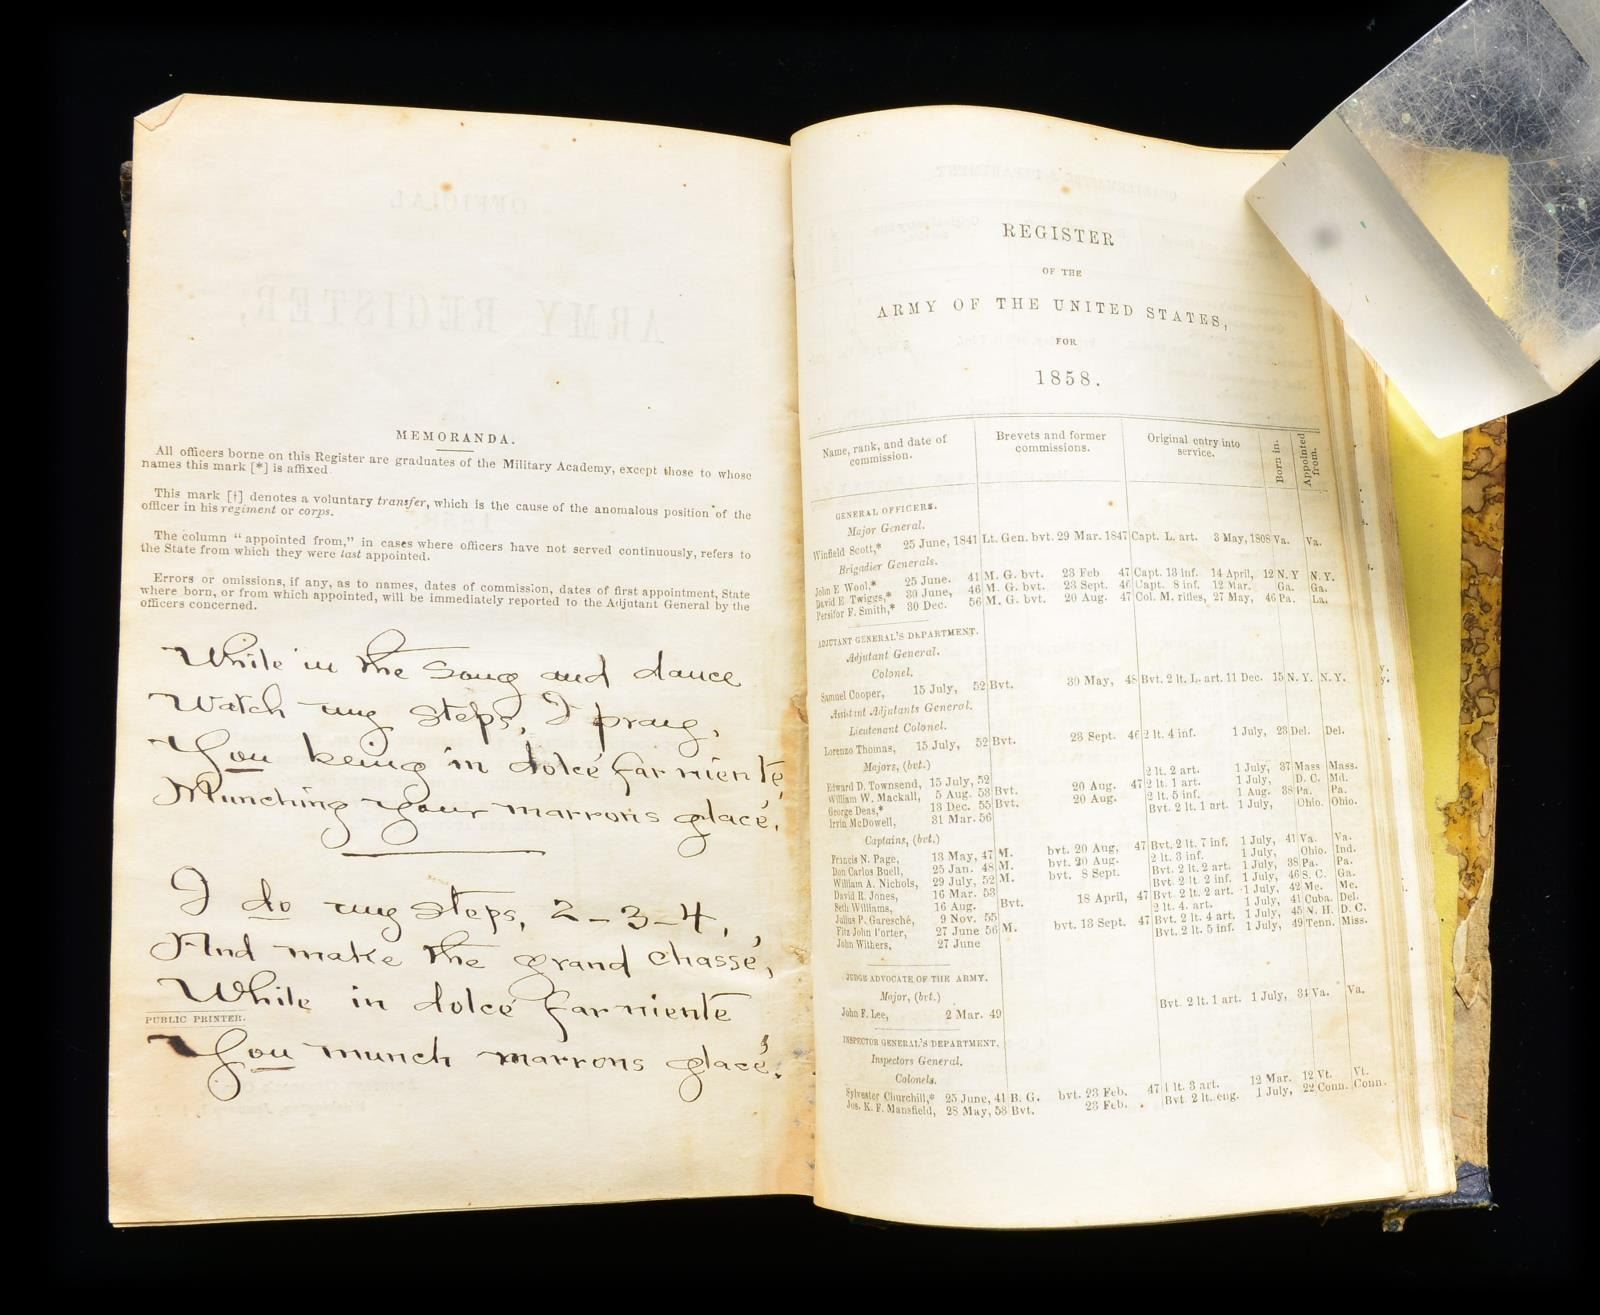 MEMORANDA.
All officers borne on this Register are graduates of the Military Academy, except those to whose
names this mark [*] is affixed
This mark [†] denotes a voluntary transfer, which is the cause of the anomalous position of the
officer in his regiment or corps.
The column "appointed from," in cases where officers have not served continuously, refers to
the State from which they were last appointed.
Errors or omissions, if any, as to names, dates of commission, dates of first appointment, State
where born, or from which appointed, will be immediately reported to the Adjutant General by the
officers concerned.
While in the song and dance
Watch my steps, I pray,
You being in dolce far niente,
Munching your marrons glacé,
I do my steps, 2-3-4,
And make the grand chassé,
While in dolcé far niente
PUBLIC PRINTER.
You munch marrons glacé.
REGISTER
OF THE
ARMY OF THE UNITED STATES,
FOR
1858.
Name, rank, and date of commission. Brevets and former commissions. Original entry into service. Born in. Appointed from.
GENERAL OFFICERS.
Major General.
Winfield Scott,* 25 June, 1841 Lt. Gen. bvt. 29 Mar. 1847 Capt. L. art. 3 May, 1808 Va. Va.
Brigadier Generals.
John E Wool,* 25 June. 41 M. G. bvt. 23 Feb 47 Capt. 13 inf. 14 April, 12 N.Y N.Y.
David E Twiggs,* 30 June, 46 M. G. bvt. 23 Sept. 46 Capt. 8 inf. 12 Mar. Ga. Ga.
Persifor F. Smith,* 30 Dec. 56 M. G. bvt. 20 Aug. 47 Col. M. rifles, 27 May, 46 Pa. La.
ADJUTANT GENERAL'S DEPARTMENT.
Adjutant General.
Colonel.
Samuel Cooper, 15 July, 52 Bvt. 30 May, 48 Bvt. 2 lt. L. art. 11 Dec. 15 N. Y. N. Y.
Assistant Adjutants General.
Lieutenant Colonel.
Lorenzo Thomas, 15 July, 52 Bvt. 23 Sept. 46 2 lt. 4 inf. 1 July, 23 Del. Del.
Majors, (bvt.)
Edward D. Townsend, 15 July, 52 2 lt. 2 art. 1 July, 37 Mass Mass.
William W. Mackall, 5 Aug. 53 Bvt. 20 Aug. 47 2 lt. 1 art. 1 July, D. C. Md.
George Deas,* 13 Dec. 55 Bvt. 20 Aug. 2 lt. 5 inf. 1 Aug. 38 Pa. Pa.
Irvin McDowell, 31 Mar. 56 Bvt. 2 lt. 1 art. 1 July, Ohio. Ohio.
Captains, (bvt.)
Francis N. Page, 13 May, 47 M. bvt. 20 Aug, 47 Bvt. 2 lt. 7 inf. 1 July, 41 Va. Va.
Don Carlos Buell, 25 Jan. 48 M. bvt. 20 Aug. 2 lt. 3 inf. 1 July, Ohio. Ind.
William A. Nichols, 29 July, 52 M. bvt. 8 Sept. Bvt. 2 lt. 2 art. 1 July, 38 Pa. Pa.
David R. Jones, 16 Mar. 53 Bvt. 2 lt. 2 inf. 1 July, 46 S. C. Ga.
Seth Williams, 16 Aug. Bvt. 18 April, 47 Bvt. 2 lt. 2 art. 1 July, 42 Me. Me.
Julius P. Garesché, 9 Nov. 55 2 lt. 4. art. 1 July, 41 Cuba. Del.
Fitz John Porter, 27 June 56 M. bvt. 13 Sept. 47 Bvt. 2 lt. 4 art. 1 July, 45 N. H. D. C.
John Withers, 27 June Bvt. 2 lt. 5 inf. 1 July, 49 Tenn. Miss.
JUDGE ADVOCATE OF THE ARMY.
Major, (bvt.)
John F. Lee, 2 Mar. 49 Bvt. 2 lt. 1 art. 1 July, 34 Va. Va.
INSPECTOR GENERAL'S DEPARTMENT.
Inspectors General.
Colonels.
Sylvester Churchill,* 25 June, 41 B. G. bvt. 23 Feb. 47 1 lt. 3 art. 12 Mar. 12 Vt. Vt.
Jos. K. F. Mansfield, 28 May, 53 Bvt. 23 Feb. Bvt. 2 lt. eng. 1 July, 22 Conn. Conn.